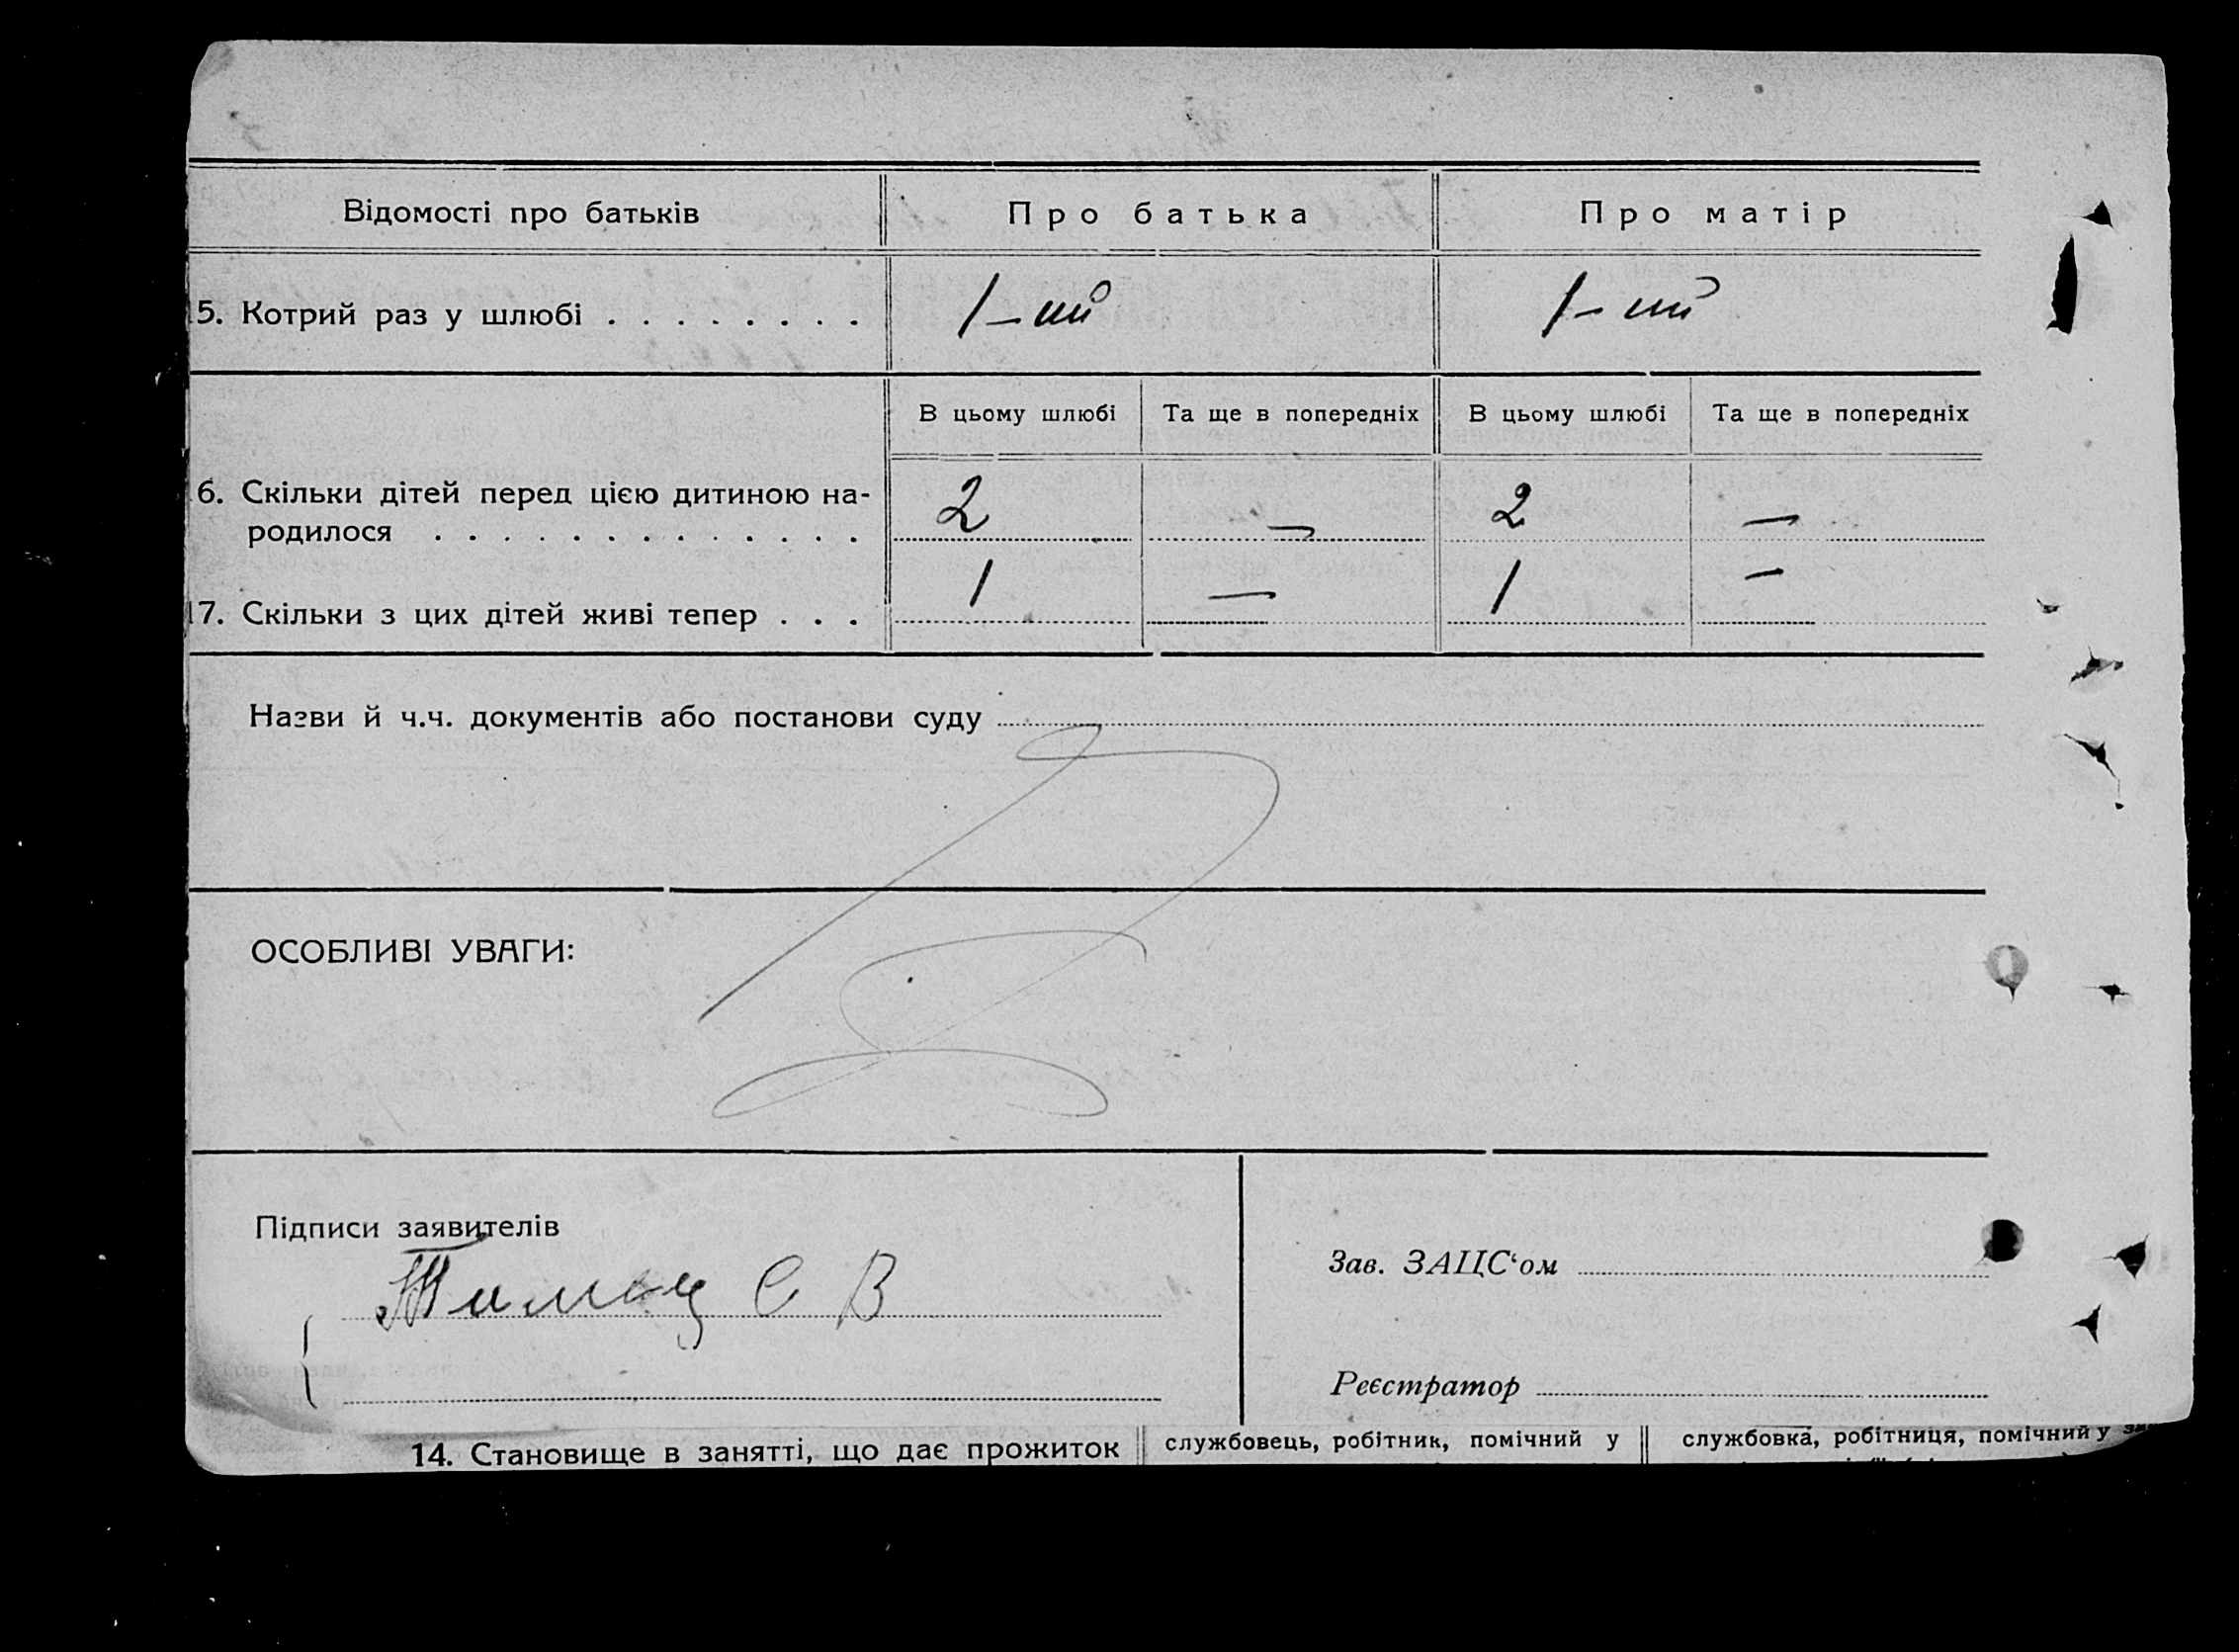 Відомості про батьків Про батька Про матір
15. Котрий раз у шлюбі . . . . . . . . 1-ий 1-ий
В цьому шлюбі Та ще в попередніх В цьому шлюбі Та ще в попередніх
6. Скільки дітей перед цією дитиною на-
родилося . . . . . . . . . . . . . 2 — 2 —
17. Скільки з цих дітей живі тепер . . . 1 — 1 —
Назви й ч.ч. документів або постанови суду
ОСОБЛИВІ УВАГИ:
Підписи заявителів
С В
Зав. ЗАЦС‘ом
Реєстратор
14. Становище в занятті, що дає прожиток службовець, робітник, помічний у службовка, робітниця, помічний у